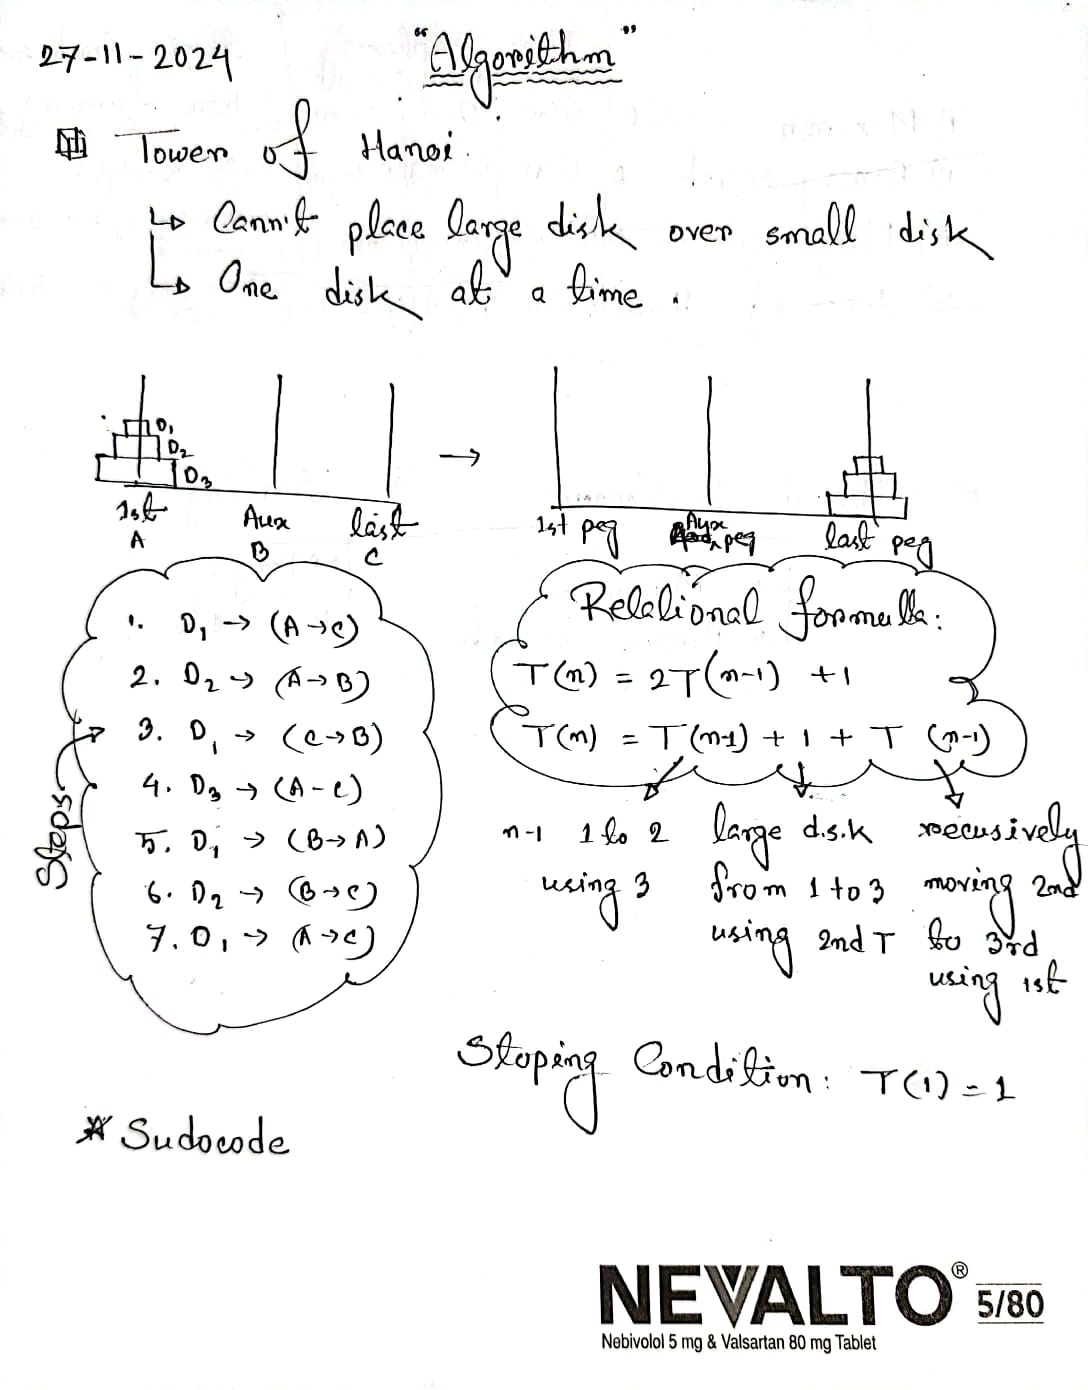 27-11-2024
"Algorithm"
Tower of Hanoi.
Cann't place large disk over small disk
One disk at a time.
D1
D2
D3
1st
A
Aux
B
last
C
→
1st peg
Aux peg
last peg
Steps
1. D1 → (A→C)
2. D2 → (A→B)
3. D1 → (C→B)
4. D3 → (A-C)
5. D1 → (B→A)
6. D2 → (B→C)
7. D1 → (A→C)
Relational formulla:
T(n) = 2T(n-1) +1
T(n) = T(n-1) + 1 + T (n-1)
n-1 1 to 2
using 3
large disk
from 1 to 3
using 2nd T
recusively
moving 2nd
to 3rd
using 1st
Stoping Condition: T(1) = 1
* Sudocode
NEVALTO® 5/80
Nebivolol 5 mg & Valsartan 80 mg Tablet